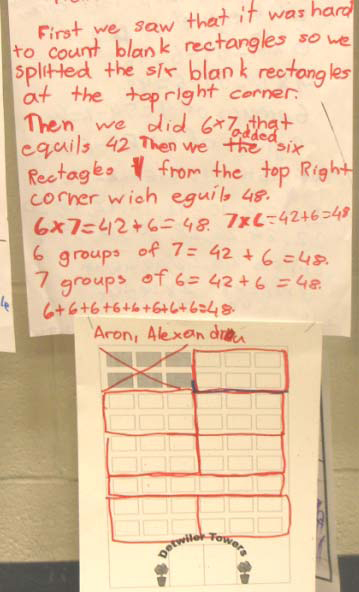 First we saw that it was hard
to count blank rectangles so we
splitted the six blank rectangles
at the top right corner.
Then we did 6×7 that
equils 42 Then we added six
Rectagles from the top Right
corner wich eguils 48.
6×7=42+6=48. 7×6=42+6=48
6 groups of 7=42+6=48.
7 groups of 6=42+6=48.
6+6+6+6+6+6+6+6=48.
Aron, Alexandru
Detwiler Towers